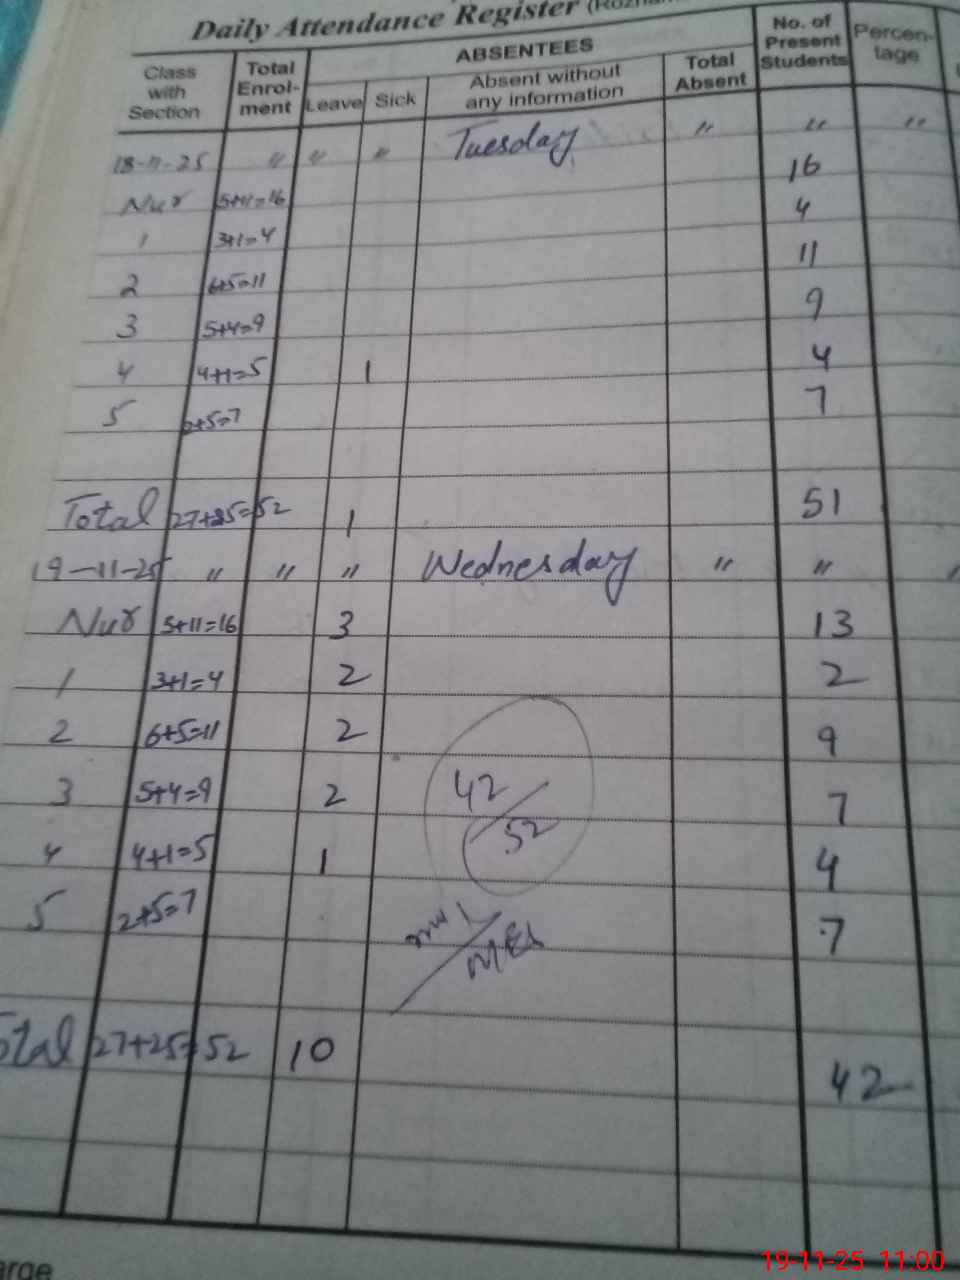 Daily Attendance Register
Class with Section Total Enrol-ment ABSENTEES No. of Present Students Percen-tage
Leave Sick Absent without any information Total Absent
18-11-25 " " " Tuesday " " "
Nur 5+11=16 16
1 3+1=4 4
2 6+5=11 11
3 5+4=9 9
4 4+1=5 1 4
5 2+5=7 7
Total 27+25=52 1 51
19-11-25 " " " Wednesday " " "
Nur 5+11=16 3 13
1 3+1=4 2 2
2 6+5=11 2 9
3 5+4=9 2 7
42/52
4 4+1=5 1 4
5 2+5=7 7
Total 27+25=52 10 42
arge
19-11-25 11:00